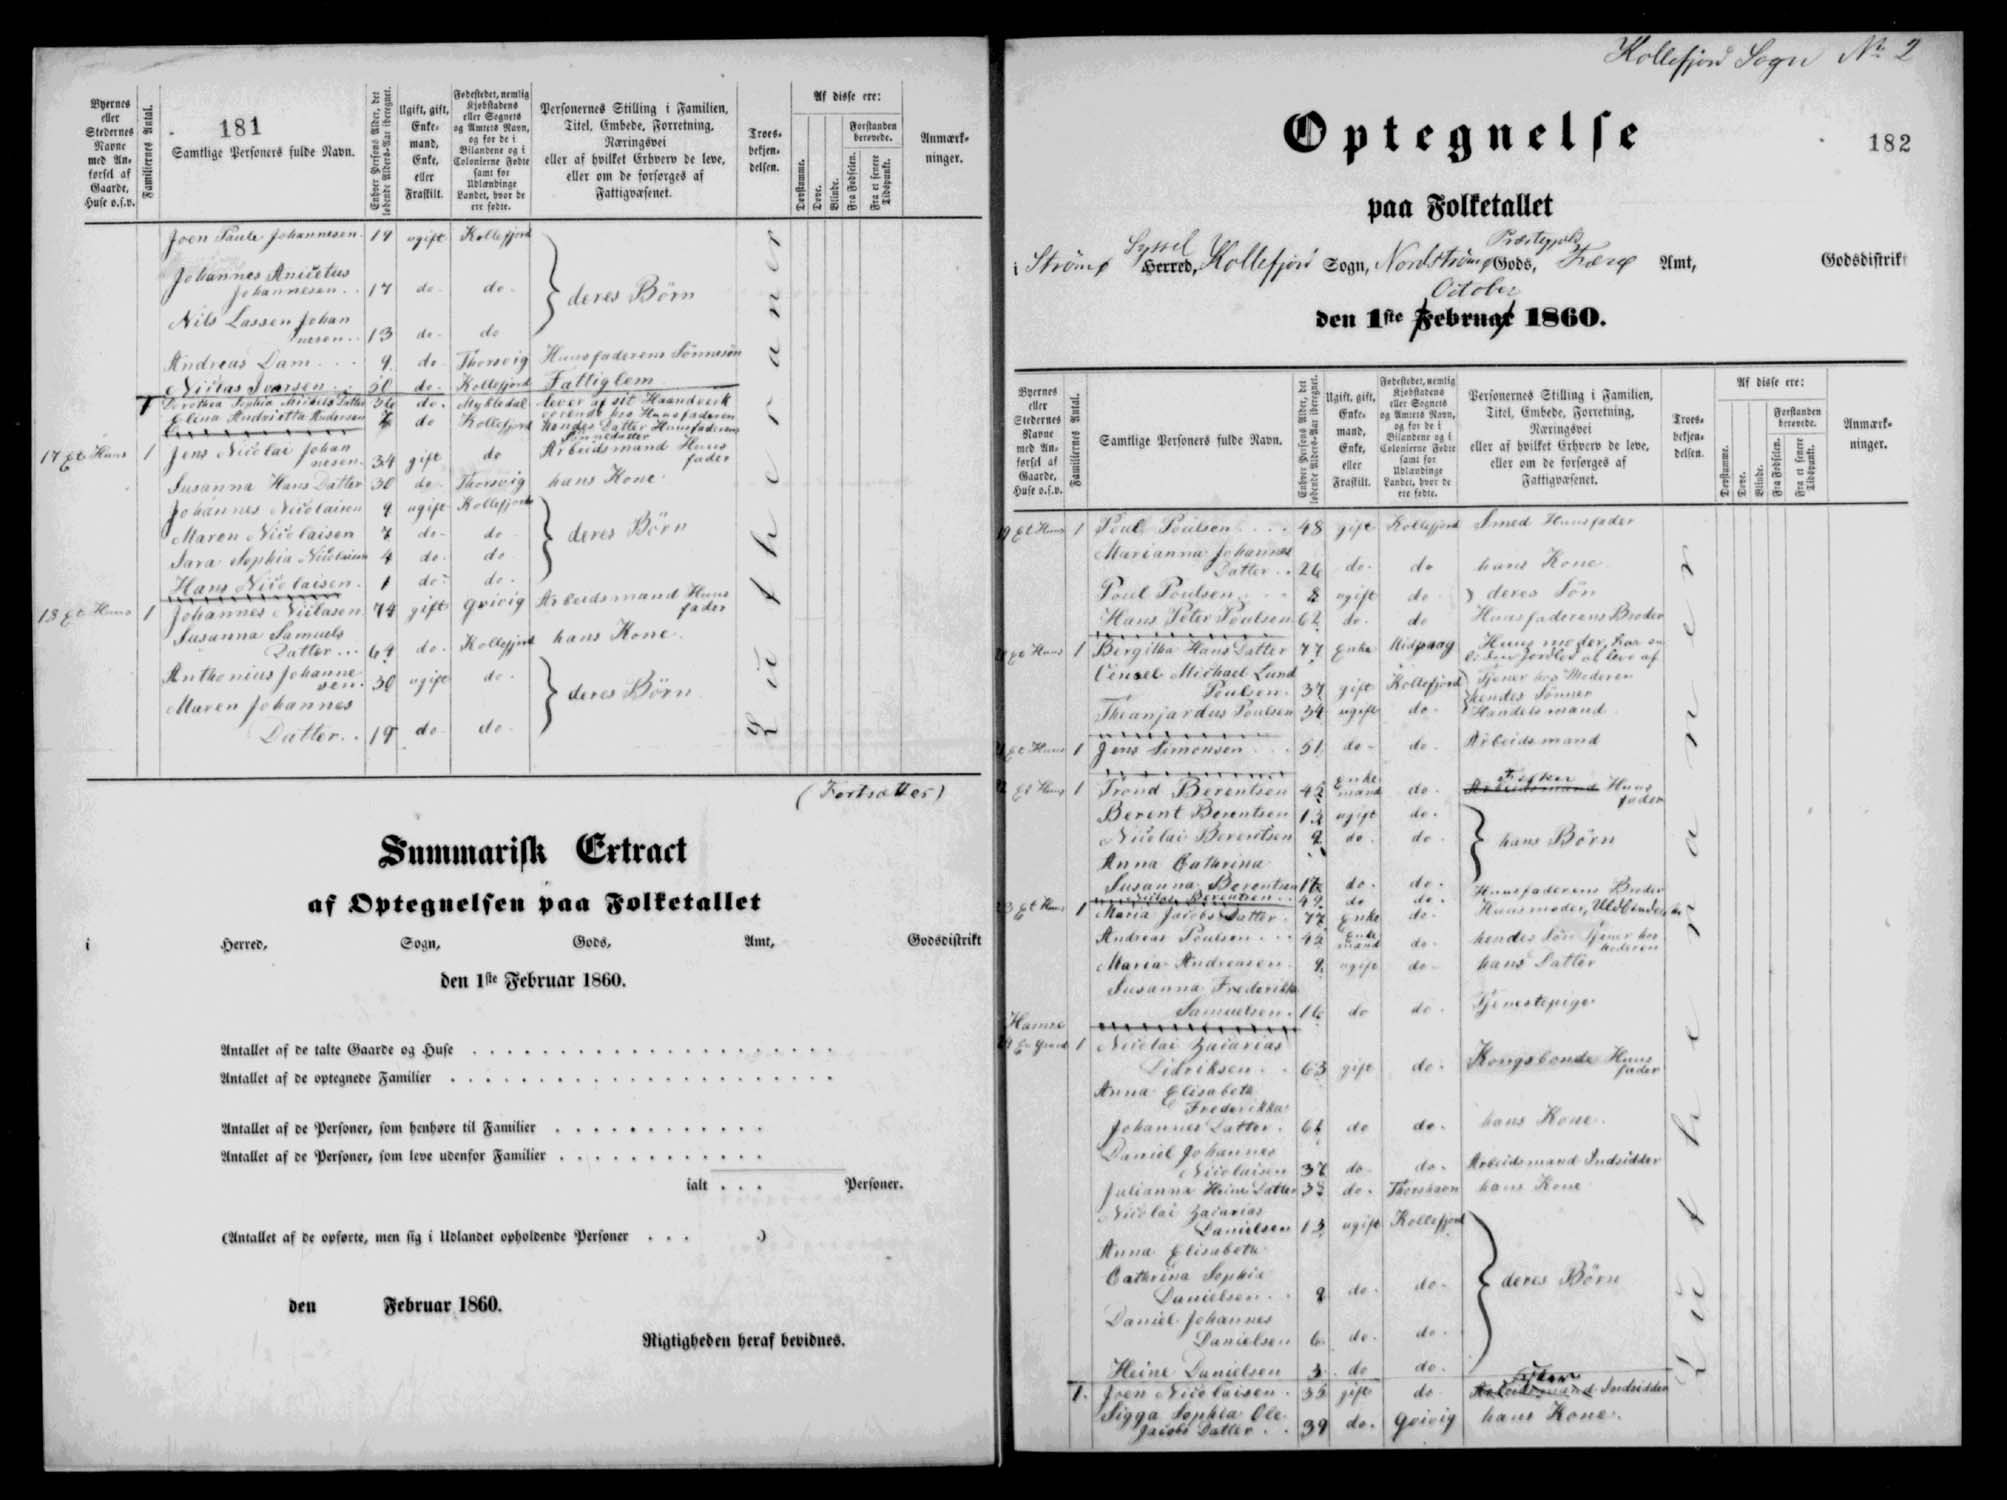 181
Byernes eller Stedernes Navne med Anførsel af Gaarde, Huse o.s.v.
Familiernes Antal.
Samtlige Personers fulde Navn.
Enhver Persons Alder, det løbende Alders-Aar iberegnet.
Ugift, gift, Enkemand, Enke, eller Fraskilt.
Fødestedet, nemlig Kjøbstadens eller Sognets og Amtets Navn, og for de i Bilandene og i Colonierne Fødte samt for Udlændinge Landet, hvor de ere fødte.
Personernes Stilling i Familien, Titel, Embede, Forretning, Næringsvei eller af hvilket Erhverv de leve, eller om de forsørges af Fattigvæsenet.
Troesbekjendelsen.
Af disse ere:
Døvstumme.
Døve.
Blinde.
Forstanden berøvede.
Fra Fødselen.
Fra et senere Tidspunkt.
Anmærkninger.
Joen Paule Johannesen. 19 ugift Kollefjord
Johannes Anicetus
Johannesen.. 17 do. do. } deres Börn
Nils Lassen Johan
nesen.. 13 do. do
Andreas Dam... 9 do Thorsvig Huusfaderens Sönnesön
50 do. Kollefjord Fattiglem
Dorothea Sophia 36 do. Mykledal lever af sit Haandverk
Elena Andrietta Andersen 7 do Kollefjord hendes Datter Huusfaderens
Sönnedatter
17 Et Huus 1 Jens Nicolai Johan
nesen. 34 gift do Arbeidsmand Huus
fader
Susanna Hans Datter 30 do. Thorsvig hans Kone.
Johannes Nicolaisen 9 ugift Kollefjord
Maren Nicolaisen 7 do- do- } deres Börn
Sara Sophia Nicolaisen 4 do. do
Hans Nicolaisen. 1 do- do.
18 Et Huus 1 Johannes 74 gift Qvivig Arbeidsmand Huus
fader
Susanna Samuels
Datter... 64 do. Kollefjord hans Kone.
Anthonius Johanne
sen. 30 ugift do- } deres Börn
Maren Johannes
Datter.. 19 do- do-
Lutheraner
(Fortsættes)
Summarisk Extract
af Optegnelsen paa Folketallet
i Herred, Sogn, Gods, Amt, Godsdistrikt
den 1ste Februar 1860.
Antallet af de talte Gaarde og Huse
Antallet af de optegnede Familier
Antallet af de Personer, som henhøre til Familier
Antallet af de Personer, som leve udenfor Familier
ialt . . . Personer.
(Antallet af de opførte, men sig i Udlandet opholdende Personer . . . )
den Februar 1860.
Rigtigheden heraf bevidnes.
Kollefjord Sogn No. 2
Optegnelse
182
paa Folketallet
Syssel Præstegjeld
i Strömø Herred, Kollefjord Sogn, Nordströmø Gods, Færø Amt, Godsdistrikt
October
den 1ste Februar 1860.
Byernes eller Stedernes Navne med Anførsel af Gaarde, Huse o.s.v.
Familiernes Antal.
Samtlige Personers fulde Navn.
Enhver Persons Alder, det løbende Alders-Aar iberegnet.
Ugift, gift, Enkemand, Enke, eller Fraskilt.
Fødestedet, nemlig Kjøbstadens eller Sognets og Amtets Navn, og for de i Bilandene og i Colonierne Fødte samt for Udlændinge Landet, hvor de ere fødte.
Personernes Stilling i Familien, Titel, Embede, Forretning, Næringsvei eller af hvilket Erhverv de leve, eller om de forsørges af Fattigvæsenet.
Troesbekjendelsen.
Af disse ere:
Døvstumme.
Døve.
Blinde.
Forstanden berøvede.
Fra Fødselen.
Fra et senere Tidspunkt.
Anmærkninger.
19 Et Huus 1 Poul Poulsen 48 gift Kollefjord Smed Huusfader
Marianna Johannes
Datter.. 26 do- do hans Kone
Poul Poulsen 8 ugift do } deres Sön
Hans Peter Poulsen 62 do. do Huusfaderens Broder
Et Huus 1 Bergitha Hans Datter 77 Enke Midvaag Huus moder, har en
liden Jordlod at leve af
Michael Lund
Poulsen. 37 gift Kollefjord Tjener hos Moderen
hendes Sönner
Theanjardus Poulsen 34 ugift do- Handelsmand
Et Huus 1 Jens Simonsen 51 do- do- Arbeidsmand
Et Huus 1 Trond Berentsen 45 Enke
mand do. Arbeidsmand Huus
fader
Berent Berentsen 13 ugift do.
Nicolai Berentsen 9 do. do. } hans Börn
Anna Cathrina
Susanna Berentsen 17 do. do.
Berentsen.. 49 do do. Huusfaderens Broder
23 Et Huus 1 Maria Jacobs Datter. 77 Enke do. Huusmoder,
Andreas Poulsen 45 Enke
mand do- hendes Sön Tjener hos
Moderen
Maria Andreasen. 9 ugift do- hans Datter
Susanna Frederikka
Samuelsen. 16 do do. Tjenestepige
24 En Gaard 1 Nicolai Zacarias
Didriksen.. 63 gift do. Kongsbonde Huus
fader
Anna Elisabeth
Frederikka
Johannes Datter. 61 do do. hans Kone.
Daniel Johannes
Nicolaisen 37 do- do. Arbeidsmand Indsidder
Julianna Heine Datter 37 do. Thorshavn hans Kone
Nicolai Zacarias
Danielsen 13 ugift Kollefjord
Anna Elisabeth
Cathrina Sophia
Danielsen.. 9 do- do- } deres Börn
Daniel Johannes
Danielsen 6 do- do-
Heine Danielsen 3 do do.
1. Joen Nicolaisen. 35 gift do Arbeidsmand Indsidder
Sigga Sophia Ole
Jacobs Datter.. 39 do. Qvivig hans Kone.
Lutheraner